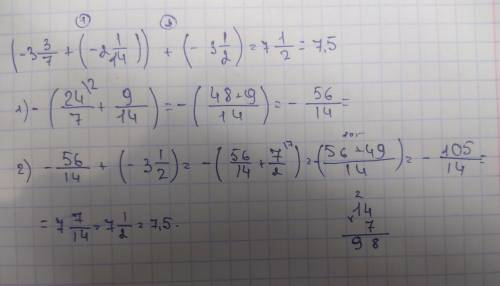 ① ②
(-3 3/7 + (-2 1/14)) + (-3 1/2) = 7 1/2 = 7,5
1) - (24\2/7 + 9/14) = - (48+9/14) = - 56/14 =
2) - 56/14 + (-3 1/2) = - (56/14 + 7\7/2) = - (56+49/14) = - 105/14 =
105
= 7 7/14 = 7 1/2 = 7,5.
2
14
× 7
98